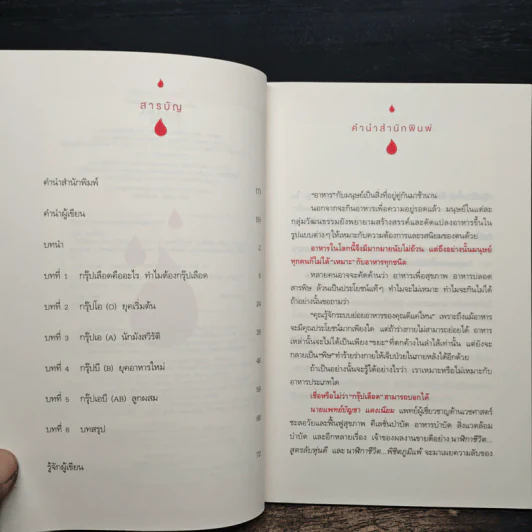 สารบัญ
คำนำสำนักพิมพ์
คำนำผู้เขียน
บทนำ
บทที่ 1 กรุ๊ปเลือดคืออะไร ทำไมต้องกรุ๊ปเลือด
บทที่ 2 กรุ๊ปโอ (O) ยุคเริ่มต้น
บทที่ 3 กรุ๊ปเอ (A) นักมังสวิรัติ
บทที่ 4 กรุ๊ปบี (B) ยุคอาหารใหม่
บทที่ 5 กรุ๊ปเอบี (AB) ลูกผสม
บทที่ 6 บทสรุป
รู้จักผู้เขียน
คำนำสำนักพิมพ์
"อาหาร"กับมนุษย์เป็นสิ่งที่อยู่คู่กันมาช้านาน
นอกจากจะกินอาหารเพื่อความอยู่รอดแล้ว มนุษย์ในแต่ละ
กลุ่มวัฒนธรรมยังพยายามสร้างสรรค์และคัดแปลงอาหารขึ้นใน
รูปแบบต่างๆ ให้เหมาะกับความต้องการและรสนิยมของตนด้วย
อาหารในโลกนี้จึงมีมากมายนับไม่ถ้วน แต่ถึงอย่างนั้นมนุษย์
ทุกคนก็ไม่ได้ "เหมาะ" กับอาหารทุกชนิด
หลายคนอาจจะคัดค้านว่า อาหารเพื่อสุขภาพ อาหารปลอด
สารพิษ ล้วนเป็นประโยชน์แท้ๆ ทำไมจะไม่เหมาะ ทำไมจะกินไม่ได้
ถ้าอย่างนั้นขอถามว่า
"คุณรู้จักระบบย่อยอาหารของคุณดีแค่ไหน" เพราะถึงแม้อาหาร
จะมีคุณประโยชน์มากเพียงใด แต่ถ้าร่างกายไม่สามารถย่อยได้ อาหาร
เหล่านั้นจะไม่ได้เป็นเพียง "ขยะ" ที่ตกค้างในลำไส้เท่านั้น แต่ยังจะ
กลายเป็น"พิษ"ทำร้ายร่างกายให้เจ็บป่วยในภายหลังได้อีกด้วย
ถ้าเป็นอย่างนั้นจะรู้ได้อย่างไรว่า เราเหมาะหรือไม่เหมาะกับ
อาหารประเภทใด
เชื่อหรือไม่ว่า "กรุ๊ปเลือด" สามารถบอกได้
นายแพทย์บัญชา แดงเนียม แพทย์ผู้เชี่ยวชาญด้านเวชศาสตร์
ชะลอวัยและฟื้นฟูสุขภาพ คีเลชั่นบำบัด อาหารบำบัด สิ่งแวดล้อม
บำบัด และอีกหลายเรื่อง เจ้าของผลงานขายดีอย่าง นาฬิกาชีวิต...
สูตรลับหุ่นดี และ นาฬิกาชีวิต...พิชิตภูมิแพ้ จะมาเผยความลับของ